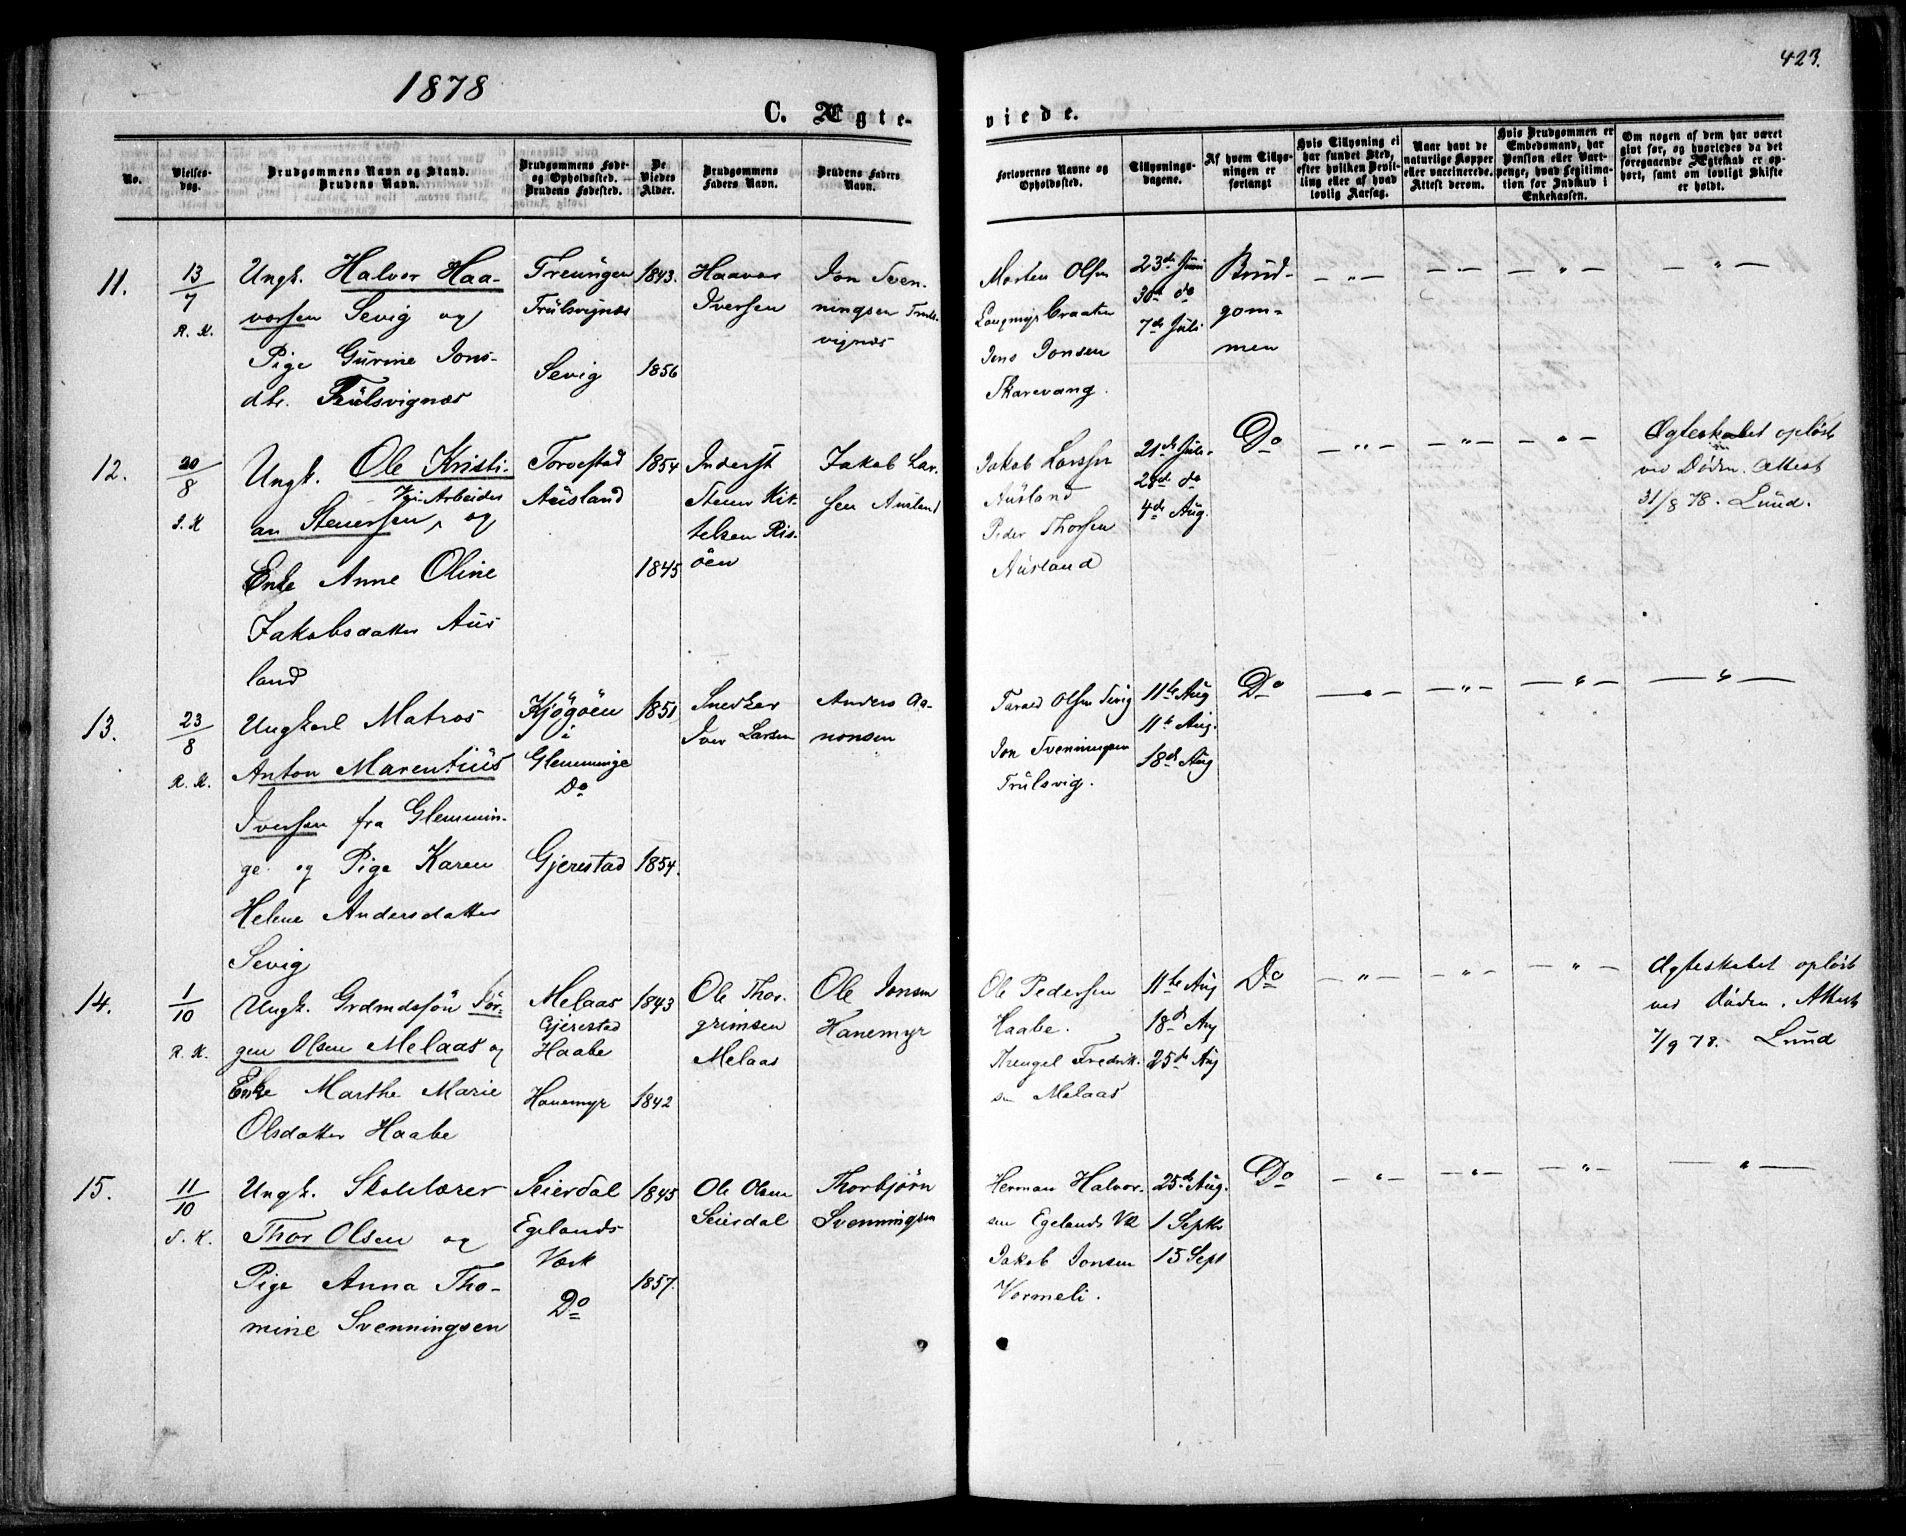 1878
423.
C. Ægte-
viede.
No.
Vielses-
dag.
Brudgommens Navn og Stand.
Brudens Navn.
Brudgommens Føde-
og Opholdssted.
Brudens Fødested.
De
Viedes
Alder.
Brudgommens
Faders Navn.
Brudens Faders
Navn.
Forlovernes Navne og
Opholdssted.
Tillysnings-
dagene.
Af hvem Tillys-
ningen er
forlangt
Hvis Tillysning ei
har fundet Sted,
efter hvilken Bevil-
ling eller af hvad
lovlig Aarsag.
Naar havt de
naturlige Kopper
eller vaccinerede.
Attest derom.
Hvis Brudgommen er
Embedsmand, har
Pension eller Vart-
penge, hvad Legitima-
tion for Indskud i
Enkekassen.
Om nogen af dem har været
gift før, og hvorledes da det
foregaaende Ægteskab er op-
hørt, samt om lovligt Skifte
er holdt.
11.
13/7
R. K.
Ungk. Halvor Haa-
vorsen Sevig og
Pige Gurine Jons-
dtr. Trulsvignæs
Treungen
Trulsvignæs
Sevig
1843.
1856
Haavor
Iversen
Jon Sven-
ningsen Truls-
vignæs
Morten Olsen
Langmyr Craaten
Jens Jonsen
Skarevang.
23de Juni
30te do
7de Juli
Brud-
gom-
men
12.
20/8
S. K
Ungk. Ole Kristi-
Vei-Arbeider
an Stenersen, og
Enke Anne Oline
Jakobsdatter Aus
land
Torvestad
Ausland
1854
1845
Inderst
Stener Kit-
telsen Ris-
öen
Jakob Lar-
sen Ausland
Jakob Larsen
Ausland
Peder Thorsen
Ausland
21de Juli.
28de do
4de Aug.
Do
Ægteskabet opløst
ved Døden. Attest
31/8 78. Lund.
13.
23/8
R. K.
Ungkarl Matros
Anton Marentius
Iversen fra Glemmin-
ge. og Pige Karen
Helene Andersdatter
Sevig
Kjögöen
i
Glemminge
Do
Gjerestad
1851
1854.
Snedker
Iver Larsen
Anders Aa-
nonsen
Tarald Olsen Sevig
Jon Svenningsen
Trulsvig.
11te Aug
11te Aug.
18de Aug
Do
14.
1/10
R. K.
Ungk. Grdmdssön Jör-
gen Olsen Melaas og
Enke Marthe Marie
Olsdatter Haabe
Melaas
Gjerestad
Haabe
Hanemyr
1843
1842
Ole Thor-
grimsen
Melaas
Ole Jonsen
Hanemyr
Ole Pedersen
Haabe.
Threngel Fredrik-
sen Melaas
11te Aug
18de Aug
25de Aug
Do
Ægteskabet opløst
ved Døden. Attest
7/9 78. Lund
15.
11/10
S. K.
Ungk. Skolelærer
Thor Olsen og
Pige Anna Tho-
mine Svenningsen
Seierdal
Egelands
Værk
Do
1845
1857.
Ole Olsen
Seierdal
Thorbjørn
Svenningsen
Herman Halvor-
sen Egelands Vk
Jakob Jonsen
Vormeli.
25de Aug.
1 Septbr
15 Sept
Do